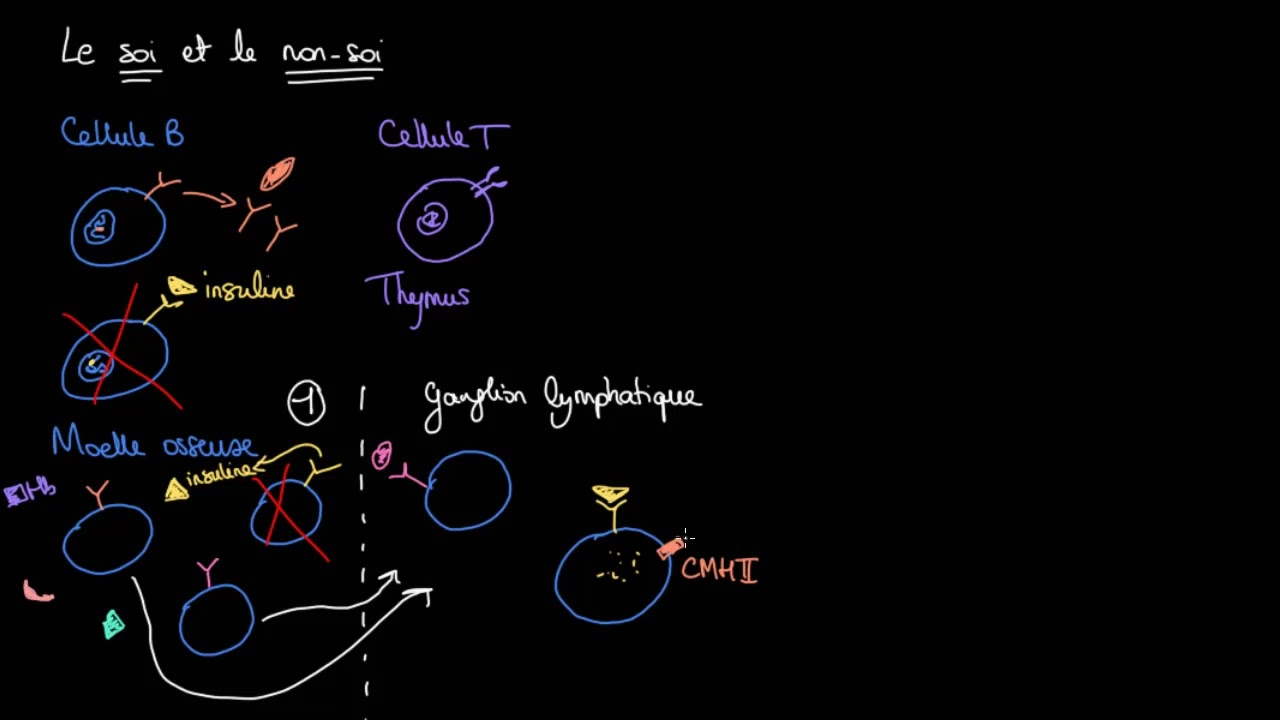 Le soi et le non-soi
Cellule B
Cellule T
insuline
Thymus
1
Ganglion lymphatique
Moelle osseuse
insuline
Hb
CMH II